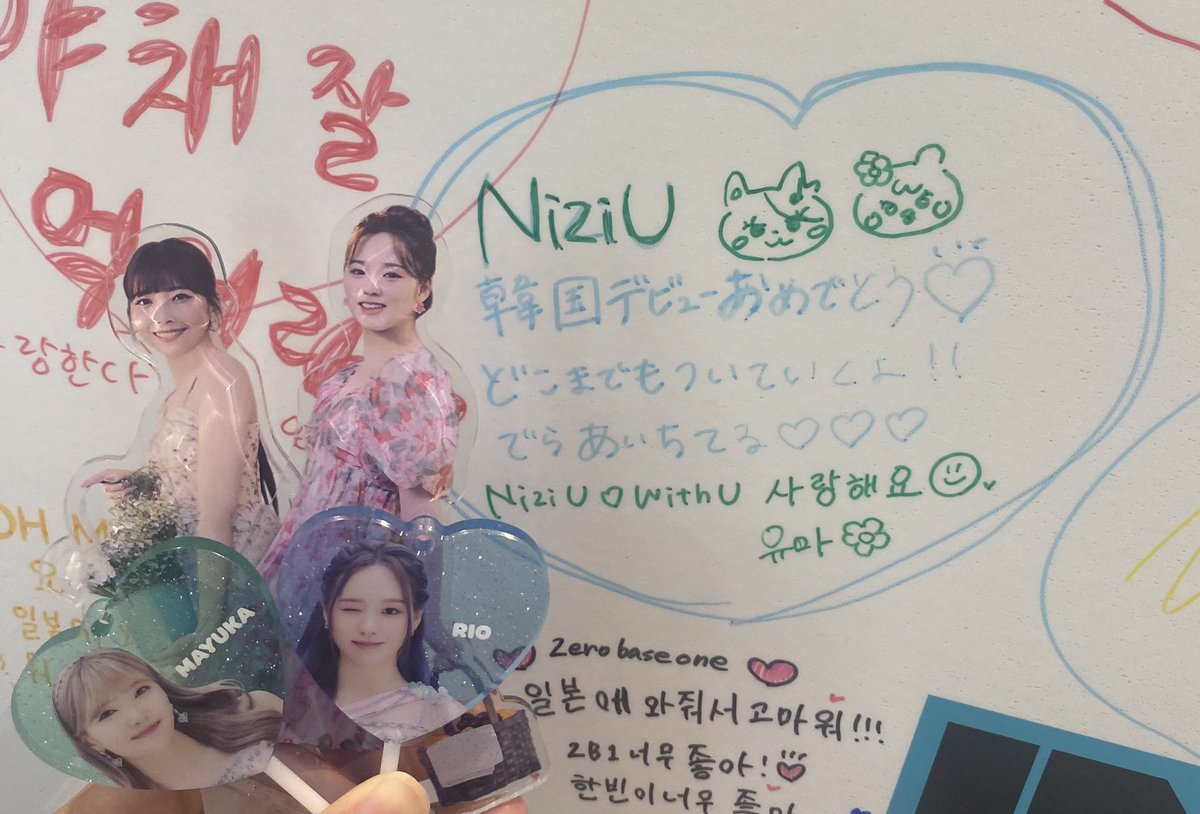 야채 잘
랑한다
NiziU
韓国デビューおめでとう♡
どこまでもついていくよ!!
でらあいちてる♡♡♡
NiziU♡WithU 사랑해요
유마
OH M
요
일본
MAYUKA
RIO
Zerobaseone
일본에 와줘서 고마워!!!
ZB1 너무 좋아!
한빈이 너무